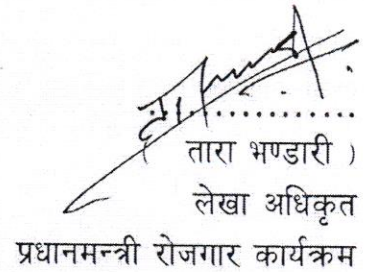 ............
( तारा भण्डारी )
लेखा अधिकृत
प्रधानमन्त्री रोजगार कार्यक्रम